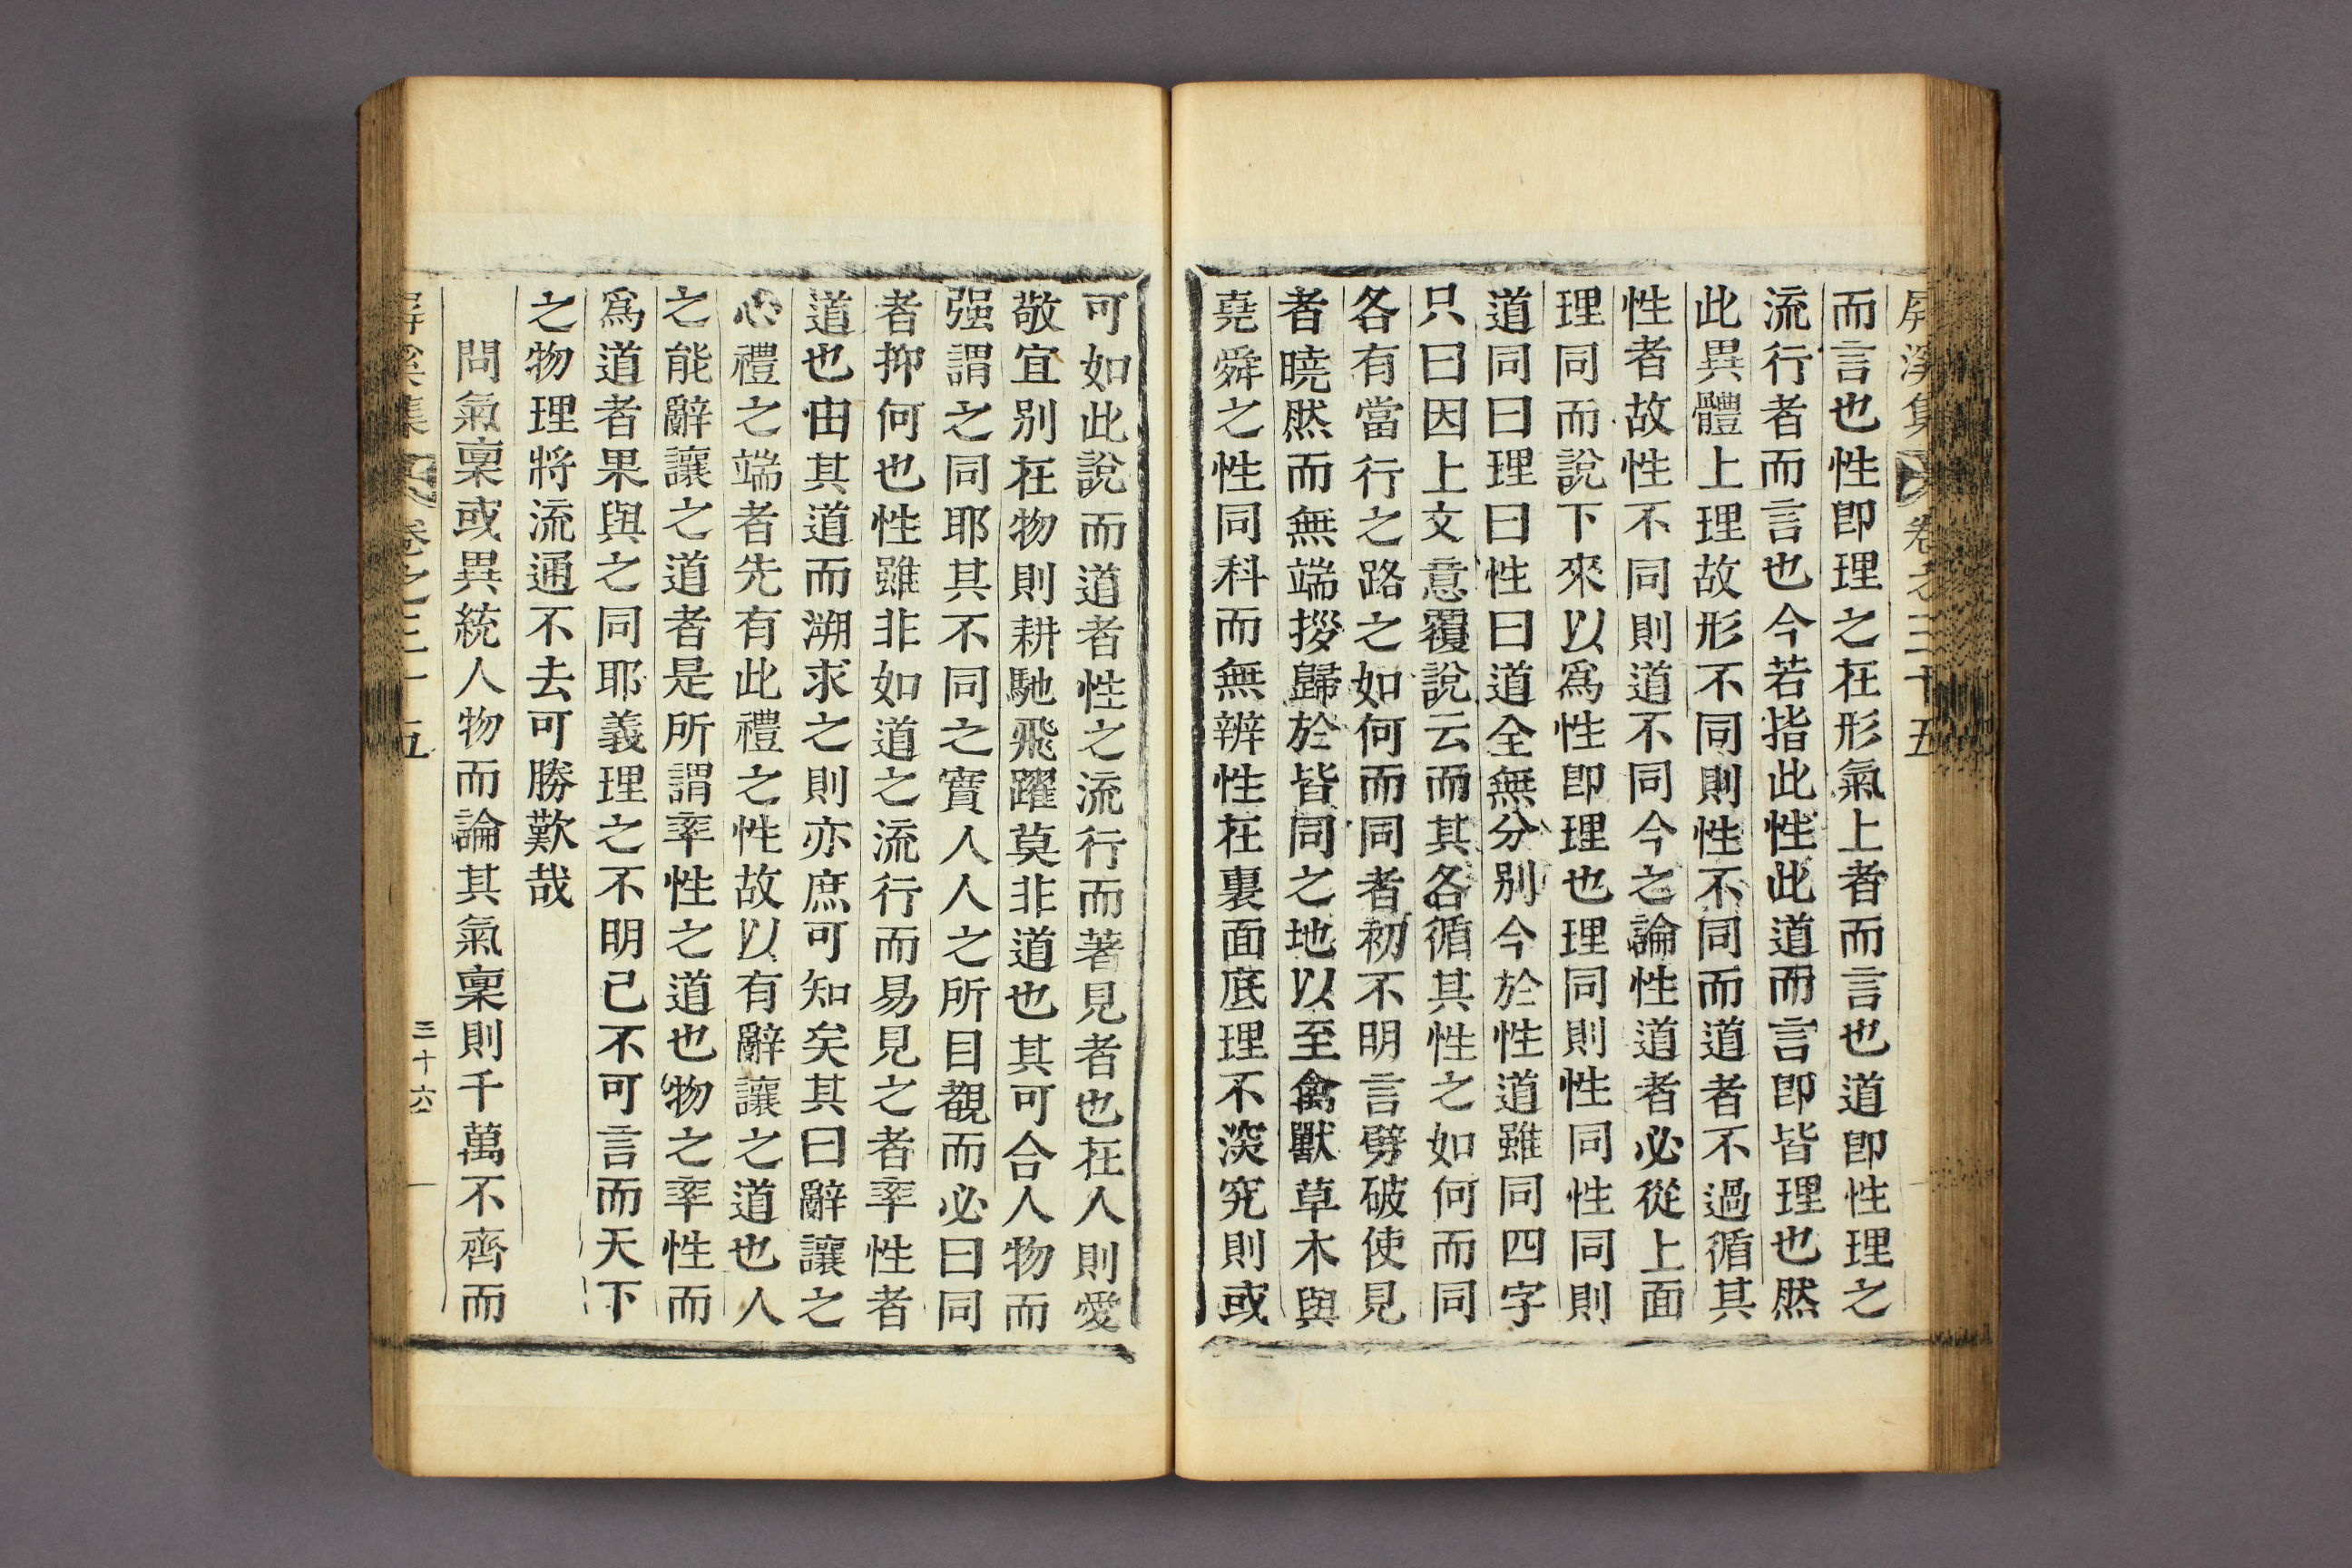 屏溪集 卷之三十五
而言也性卽理之在形氣上者而言也道卽性理之
流行者而言也今若指此性此道而言卽皆理也然
此異體上理故形不同則性不同而道者不過循其
性者故性不同則道不同今之論性道者必從上面
理同而說下來以爲性卽理也理同則性同性同則
道同曰理曰性曰道全無分別今於性道雖同四字
只曰因上文意覆說云而其各循其性之如何而同
各有當行之路之如何而同者初不明言劈破使見
者曉然而無端拶歸於皆同之地以至禽獸草木與
堯舜之性同科而無辨性在裏面底理不深究則或
可如此說而道者性之流行而著見者也在人則愛
敬宜別在物則耕馳飛躍莫非道也其可合人物而
强謂之同耶其不同之實人人之所目覩而必曰同
者抑何也性雖非如道之流行而易見之者率性者
道也由其道而溯求之則亦庶可知矣其曰辭讓之
心禮之端者先有此禮之性故以有辭讓之道也人
之能辭讓之道者是所謂率性之道也物之率性而
爲道者果與之同耶義理之不明已不可言而天下
之物理將流通不去可勝歎哉
問氣稟或異統人物而論其氣稟則千萬不齊而
屏溪集 卷之三十五 三十六